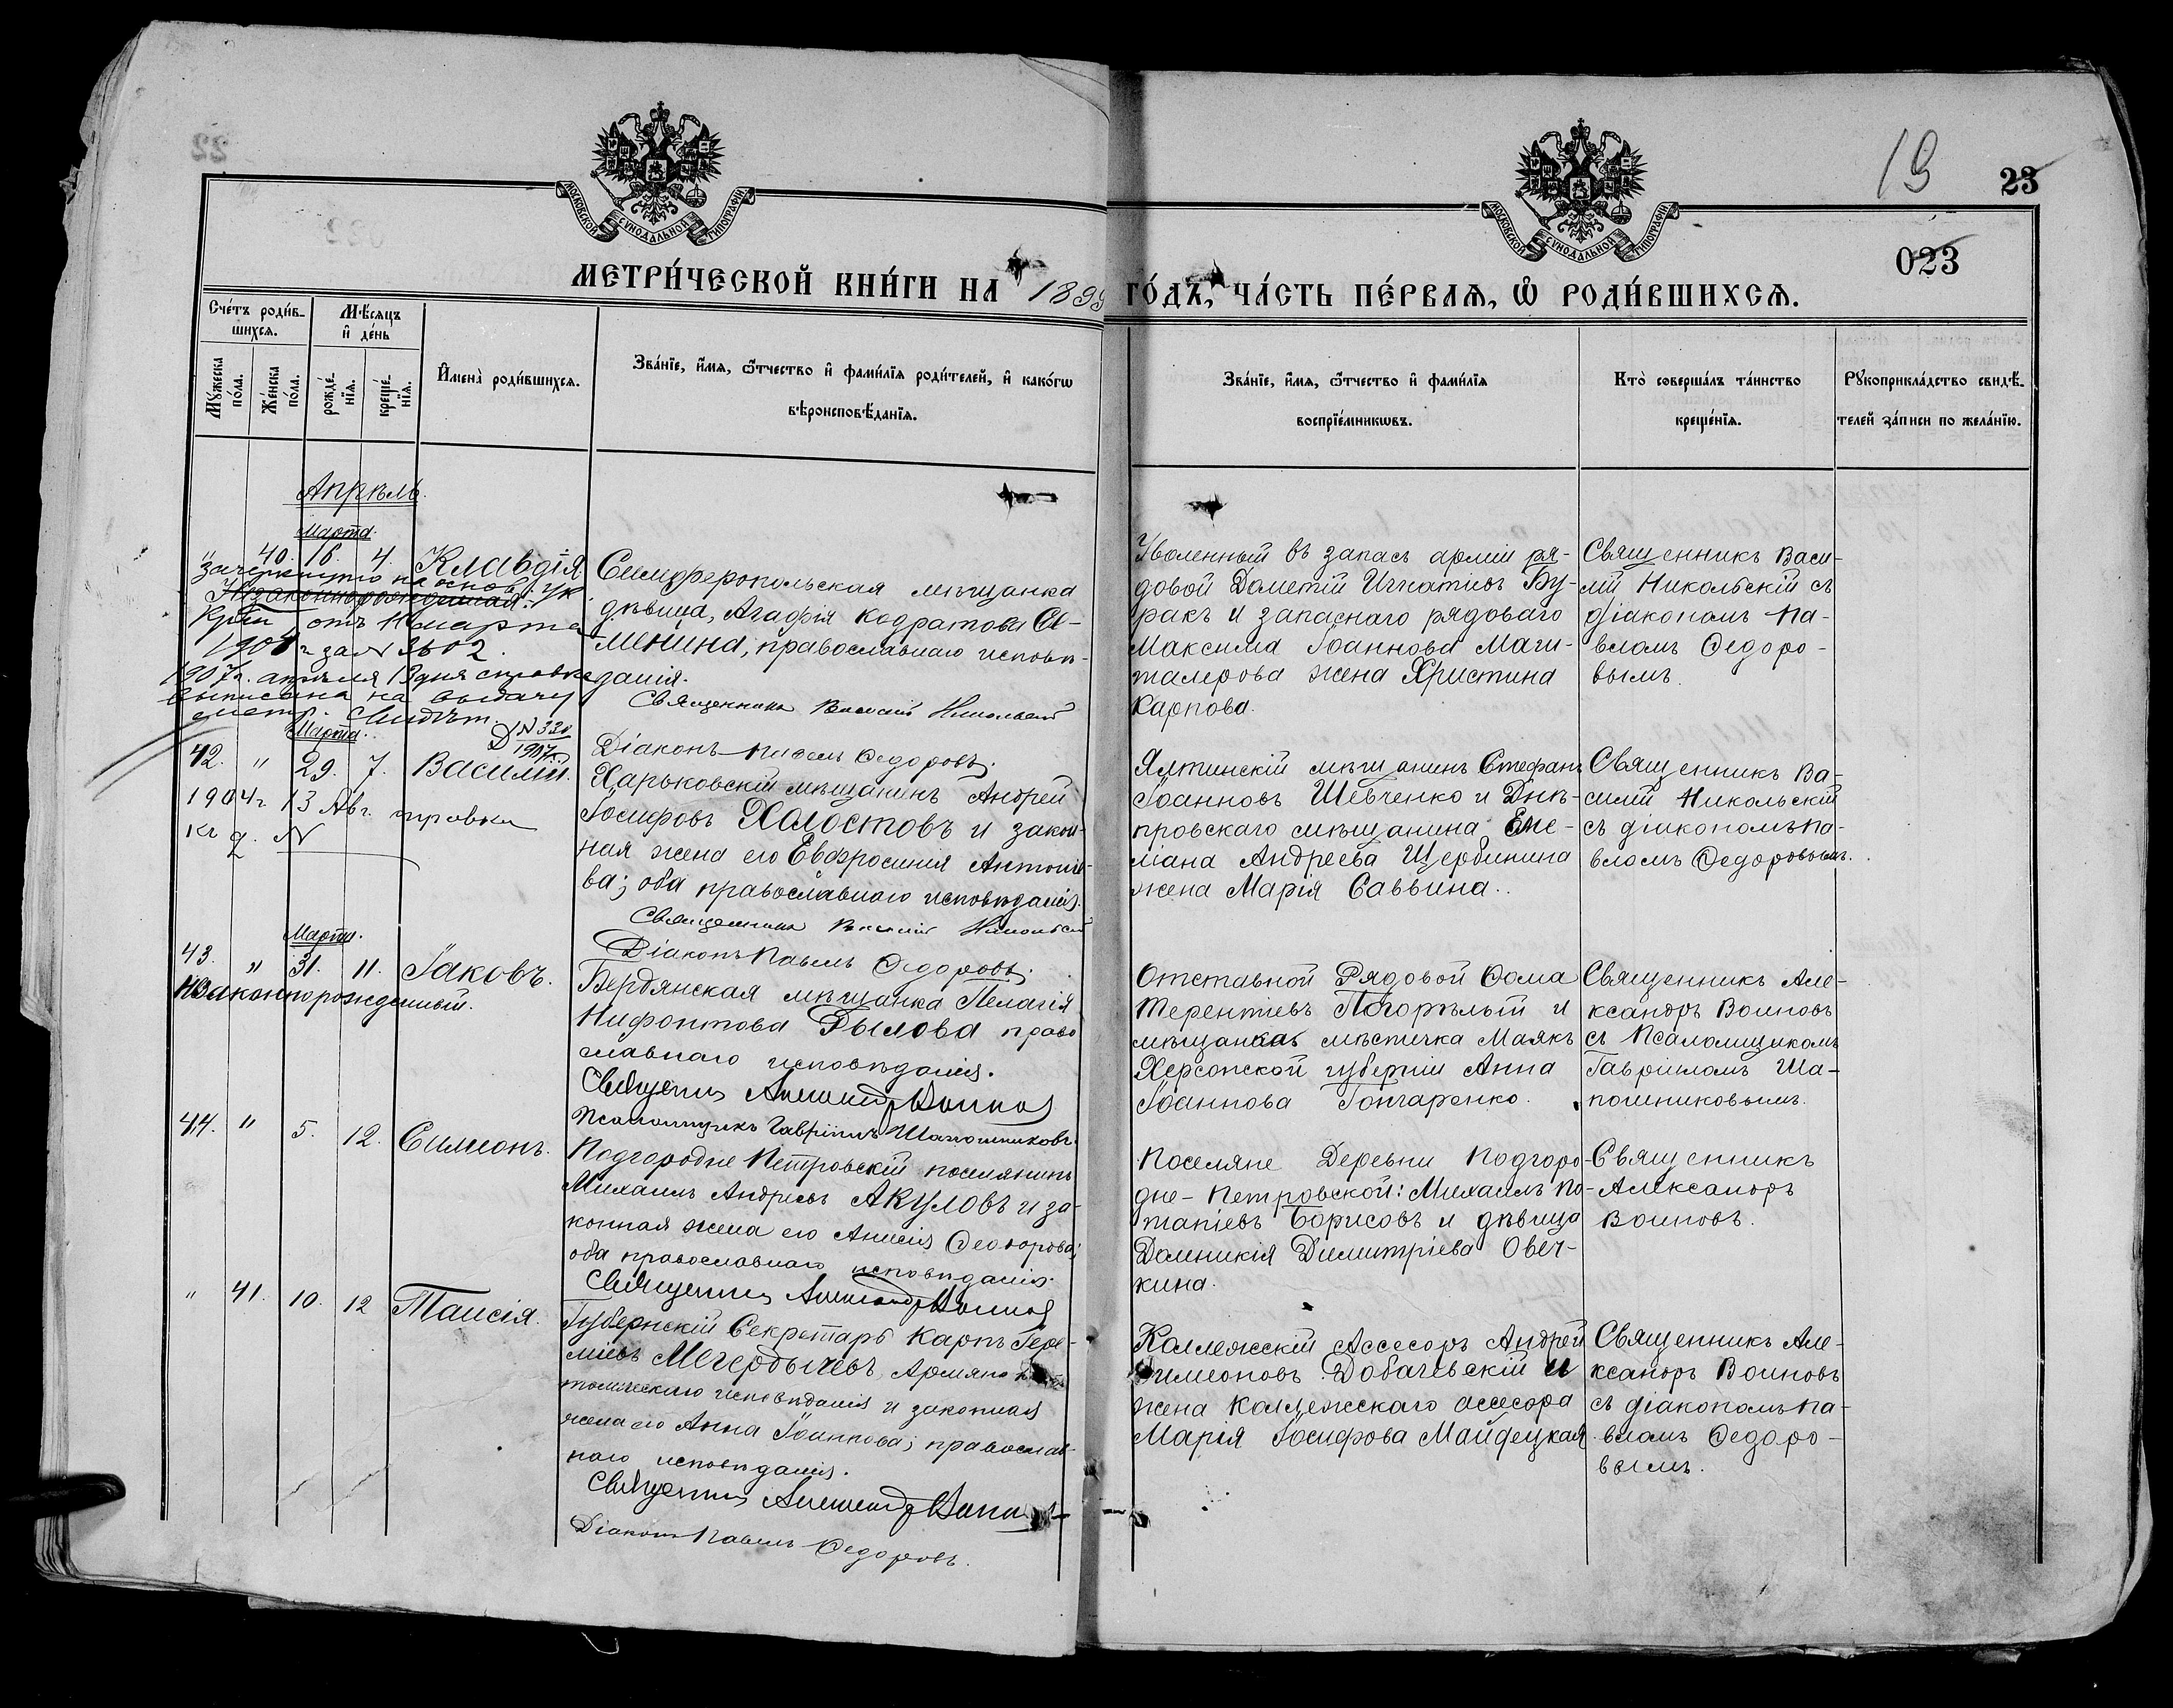 МОСКОВСКОЙ СѴНОДАЛЬНОЙ ТИПОГРАФІИ
МОСКОВСКОЙ СѴНОДАЛЬНОЙ ТИПОГРАФІИ
19 23
023
МЕТРИ́ЧЕСКОЙ КНИ́ГИ НА 1899 ГО́ДЪ, ЧА́СТЬ ПЕ́РВАЯ, Ѡ РОДИ́ВШИХСЯ.
Сче́тъ роди́в-
шихся.
Мꙋ́жеска
по́ла.
Же́нска
по́ла.
Мѣ́сяцъ
и҆ де́нь
рожде́-
нїя.
креще́-
нїя.
И҆мена̀ роди́вшихся.
Зва́нїе, и҆́мя, ѻ҆́тчество и҆ фами́лїя роди́телей, и҆ како́гѡ
вѣроисповѣ́данїя.
Зва́нїе, и҆́мя, ѻ҆́тчество и҆ фами́лїя
воспрїе́мникѡвъ.
Кто̀ соверша́лъ та́инство
креще́нїя.
Рꙋкоприкла́дство свидѣ́-
телей за́писи по жела́нїю.
Апрѣль.
Марта.
" 40. 18. 4. Клавдія
зачеркнуто на основ. ук.
Незаконнорожденная.
отъ Марта
г. за № 3602.
1907 г. апрѣля 13 дня справка
выписана на выдачу
метр. Свидѣт.
№ 320
1907 г.
Симферопольская мѣщанка
дѣвица, Агафія Кодратова Се-
менина, православнаго исповѣ-
данія.
Священникъ Василій Никольскій
Діаконъ Павелъ Ѳедоровъ.
Уволенный въ запасъ арміи ря-
довой Дометій Игнатьевъ Бу-
ракъ и запаснаго рядоваго
Максима Іоаннова Маги-
талерова жена Христина
Карпова.
Священникъ Васи-
лій Никольскій съ
діакономъ Па-
вломъ Ѳедоро-
вымъ.
Марта.
42. " 29. 7. Василій.
1904 г. 13 Авг. справка
№
Харьковскій мѣщанинъ Андрей
Іосифовъ Халостовъ и закон-
ная жена его Евфросинія Антоніе-
ва; оба православнаго исповѣданія.
Священникъ Василій Никольскій
Діаконъ Павелъ Ѳедоровъ.
Ялтинскій мѣщанинъ Стефанъ
Іоанновъ Шевченко и Днѣ-
провскаго мѣщанина Еме-
ліана Андреева Щербинина
жена Марія Саввина.
Священникъ Ва-
силій Никольскій
съ діакономъ Па-
вломъ Ѳедоровымъ.
Марта.
43. " 31. 11. Іаковъ.
Незаконнорожденный.
Бердянская мѣщанка Пелагія
Нифонтова Рылова право
славнаго исповѣданія.
Священникъ Александръ Воиновъ
Псаломщикъ Гавріилъ Шапошниковъ.
Отставной Рядовой Ѳома
Терентіевъ Погорѣлый и
мѣщанка мѣстечка Маякъ
Херсонской губерніи Анна
Іоаннова Гончаренко.
Священникъ Але-
ксандръ Воиновъ
съ Псаломщикомъ
Гавріиломъ Ша-
пошниковымъ.
44. " 5. 12. Симеонъ.
Подгородне Петровскій поселянинъ
Михаилъ Андреевъ Акуловъ и за-
конная жена его Анисія Ѳеодорова;
оба православнаго исповѣданія.
Священникъ Александръ Воиновъ
Поселяне Деревни Подгоро-
дне-Петровской: Михаилъ По-
тапіевъ Борисовъ и дѣвица
Домникія Димитріева Овеч-
кина.
Священникъ
Александръ
Воиновъ.
" 41. 10. 12 Таисія.
Губернскій Секретарь Карпъ Іере-
міевъ Мегердычевъ, Армяно
толическаго исповѣданія и законная
жена его Анна Іоаннова; православ-
наго исповѣданія.
Священникъ Александръ Воиновъ
Діаконъ Павелъ Ѳедоровъ.
Коллежскій Ассесоръ Андрей
Симеоновъ Добачевскій и
жена Коллежскаго ассесора
Марія Іосифова Майдецкая
Священникъ Але-
ксандръ Воиновъ
съ діакономъ Па-
вломъ Ѳедоро-
вымъ.